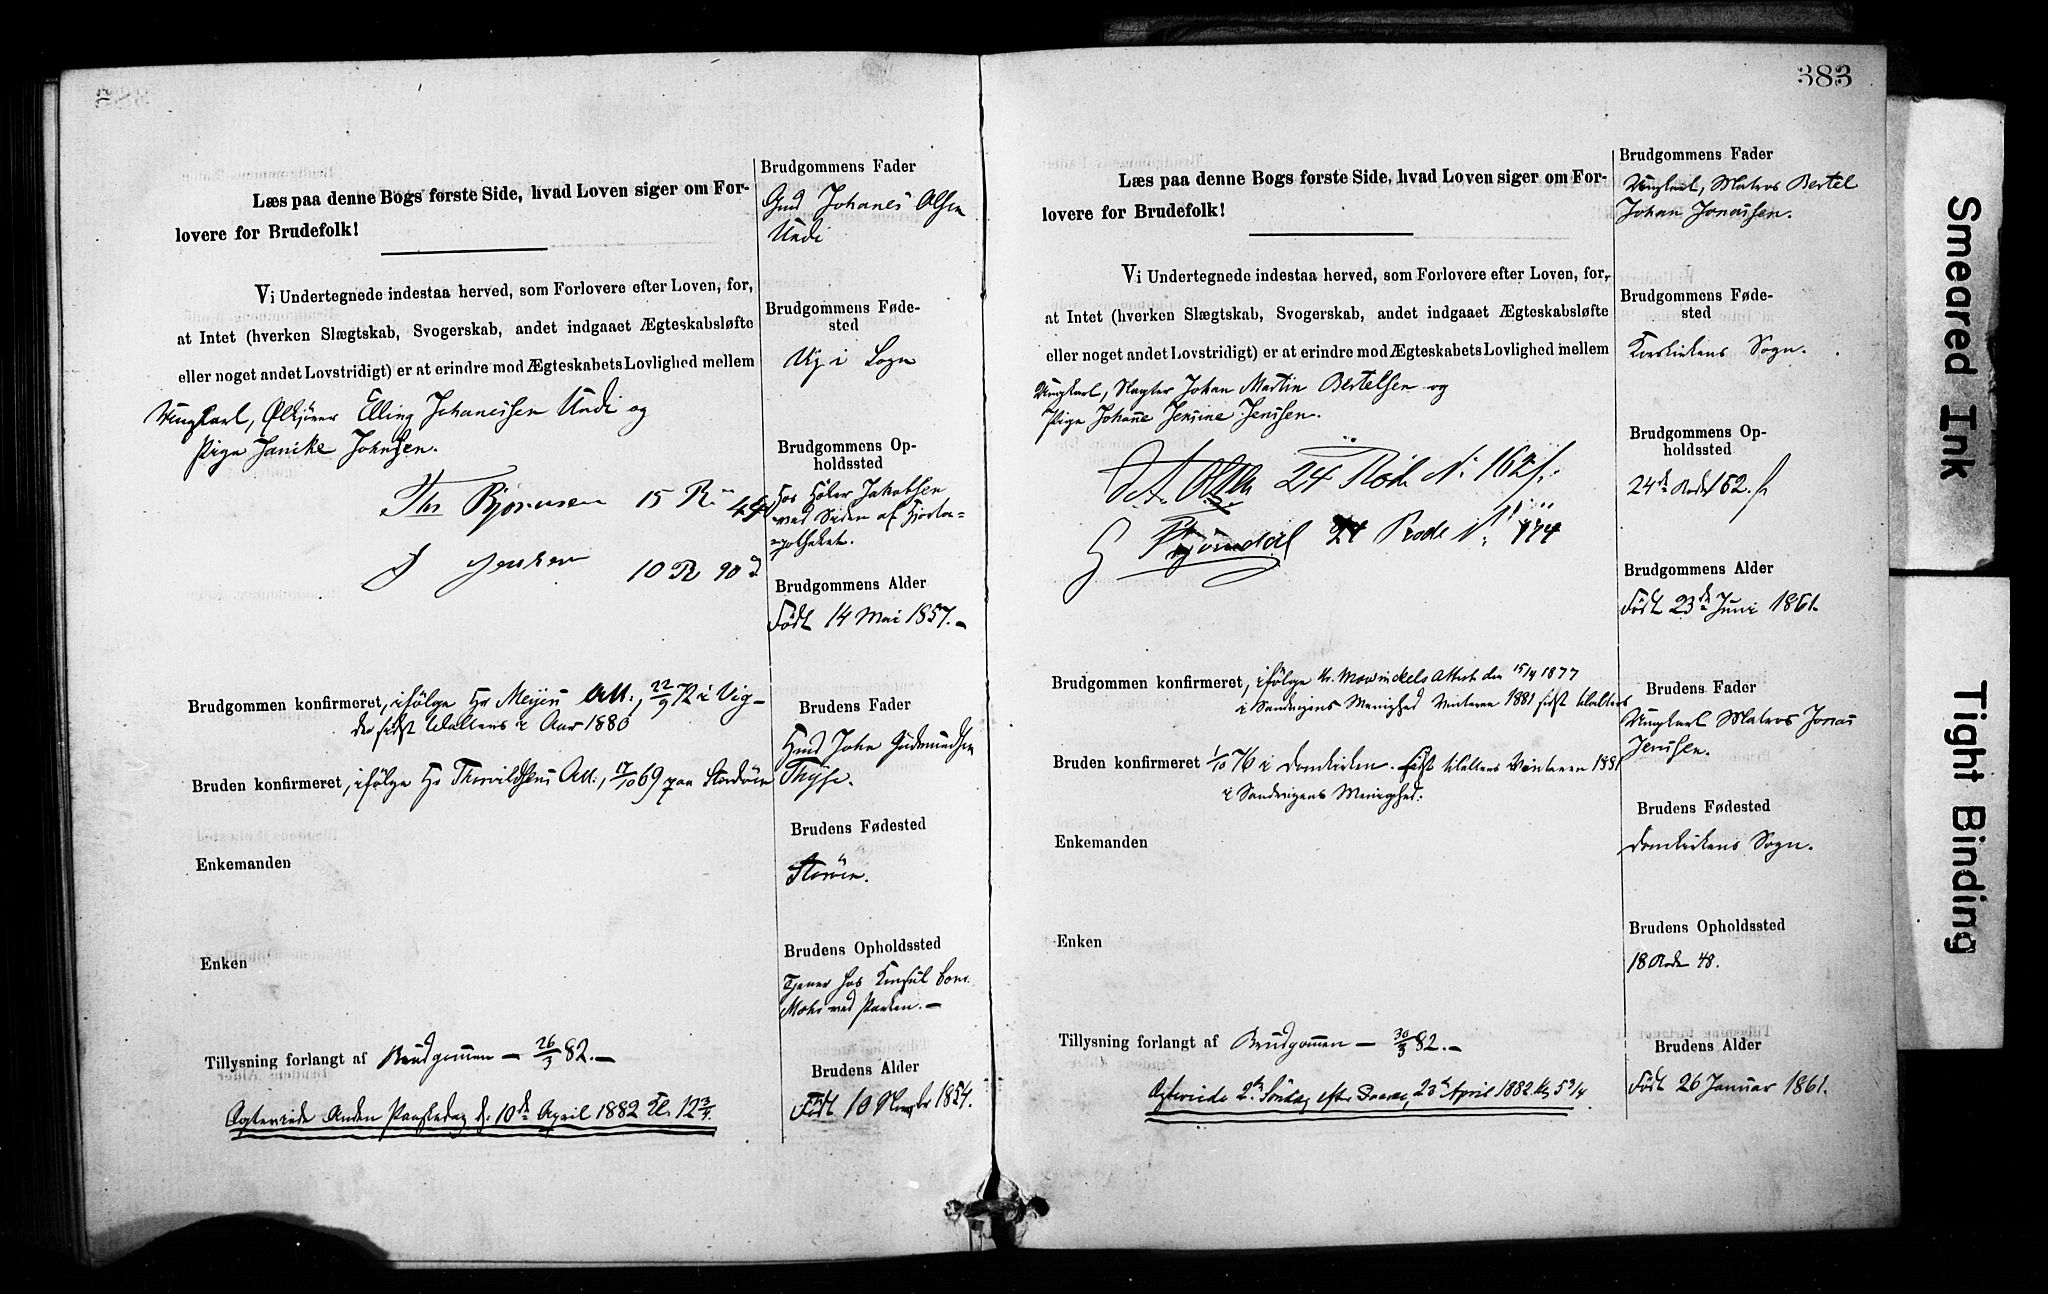 383
Læs paa denne Bogs første Side, hvad Loven siger om For-
lovere for Brudefolk!
Vi Undertegnede indestaa herved, som Forlovere efter Loven, for,
at Intet (hverken Slægtskab, Svogerskab, andet indgaaet Ægteskabsløfte
eller noget andet Lovstridigt) er at erindre mod Ægteskabets Lovlighed mellem
Ungkarl, Ølkjører Elling Johannesen Undi og
Pige Janike Johnsen.
Ths Bjørnesen 15 R. 44
J Jensen 10 R 90
Brudgommen konfirmeret, ifølge Hr Meyers Att., 22/9 72 i Vig-
der sidst Altters i Aar 1880
Bruden konfirmeret, ifølge Hr Thorvildsens Att., 17/10 69 paa Stordøen
Enkemanden
Enken
Tillysning forlangt af Brudgommen — 26/3 82. —
Ægteviede Anden Paaskedag d. 10de April 1882 Kl. 12 3/4.
Brudgommens Fader
Gmd Johanes Olsen
Undi
Brudgommens Føde-
sted
Vig i Sogn
Brudgommens Op-
holdssted
Hos Jakobsen
ved Siden af Hjorte=
apotheket.
Brudgommens Alder
Født 14 Mai 1857. —
Brudens Fader
Hmd John Gudmundsen
Brudens Fødested
Storøen.
Brudens Opholdssted
Tjener hos Konsul Conr.
Mohr ved Parken. —
Brudens Alder
Født 10 1854.
Læs paa denne Bogs første Side, hvad Loven siger om For-
lovere for Brudefolk!
Vi Undertegnede indestaa herved, som Forlovere efter Loven, for,
at Intet (hverken Slægtskab, Svogerskab, andet indgaaet Ægteskabsløfte
eller noget andet Lovstridigt) er at erindre mod Ægteskabets Lovlighed mellem
Ungkarl, Slagter Johan Martin Bertelsen og
Pige Johanne Jensine Jenssen.
A. Olsen 24 Rode No 162
Bjørndal 24 Rode No 174
Brudgommen konfirmeret, ifølge Hr. Mowinckels Attest den 15/4 1877
i Sandvigens Menighed Vinteren 1881 sidst Altters
Bruden konfirmeret 1/10 76 i Domkirken. Sidst Altters Vinteren 1881
i Sandvigens Menighed.
Enkemanden
Enken
Tillysning forlangt af Brudgommen — 30/3 82. —
Ægteviede 2de Søndag efter Paaske, 23de April 1882. Kl. 5 3/4.
Brudgommens Fader
Ungkarl, Matros Bertel
Johan Jonassen.
Brudgommens Føde-
sted
Korskirkens Sogn.
Brudgommens Op-
holdssted
24de Rode 162. f
Brudgommens Alder
Født 23de Juni 1861.
Brudens Fader
Ungkarl Matros Jonas
Jenssen.
Brudens Fødested
Domkirkens Sogn.
Brudens Opholdssted
18 Rode 48.
Brudens Alder
Født 26 Januar 1861.
Smeared Ink
Tight Binding